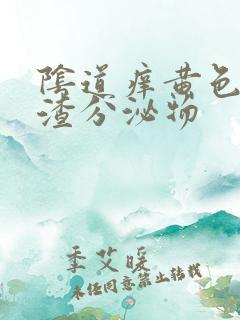 陰道痒黄色
渣分泌物
季艾暖
未经同意禁止转载